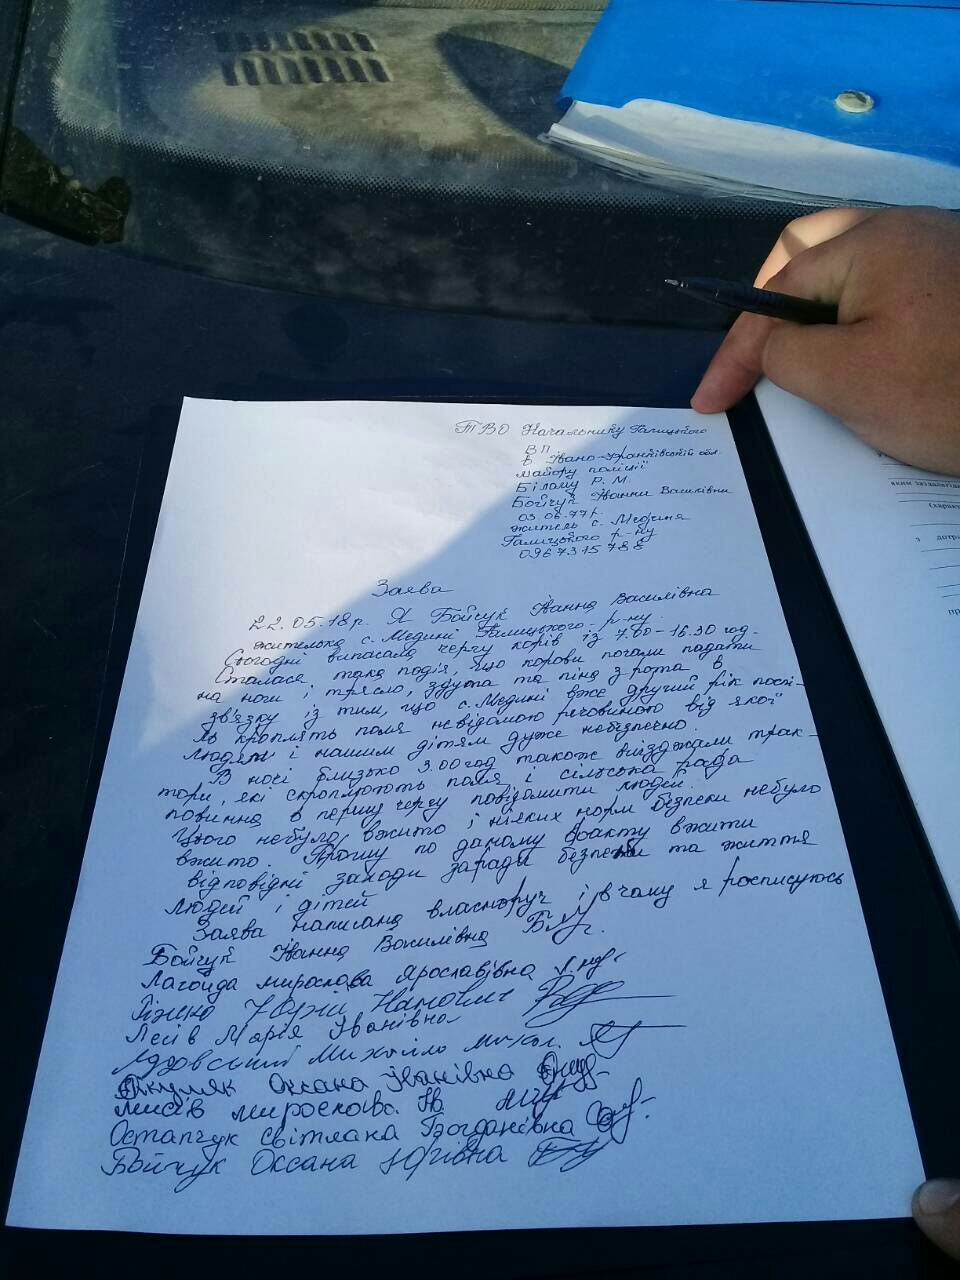 ТВО Начальнику Галицького
ВП
в Івано-Франківській обл.
майору поліції
Білому Р. М.
Бойчук Жанни Василівни
03.08.77р.
житель с. Медуня
Галицького р-ну
0967315788
Заява
22.05.18р. Я Бойчук Жанна Василівна
жителька с. Медині Галицького р-ну.
Сьогодні випасала чергу корів із 7.00-16.30 год.
Сталася така подія, що корови почали падати
на ноги і трясло, здута та піна з рота в
зв'язку із тим, що с. Медині вже другий рік поспі-
ль кроплять поля невідомою речовиною від якої
людям і нашим дітям дуже небезпечно.
В ночі близько 3.00 год також виїзджали трак-
тори, які скроплюють поля і сільська рада
повинна в першу чергу повідомити людей.
Цього небуло вжито і ніяких норм безпеки небуло
вжито. Прошу по даному факту вжити
відповідні заходи заради безпеки та життя
людей і дітей
Заява написана власноруч і в чому я розписуюсь
Бойчук Жанна Василівна
Лагойда мирослава Ярославівна
Юрій
Лесів Марія Іванівна
Михайло микол.
Оксана іванівна
Лисів
Остапчук світлана Богданівна
Бойчук Оксана Юріївна
яким заздалегідь
(характ
з дотр
пр